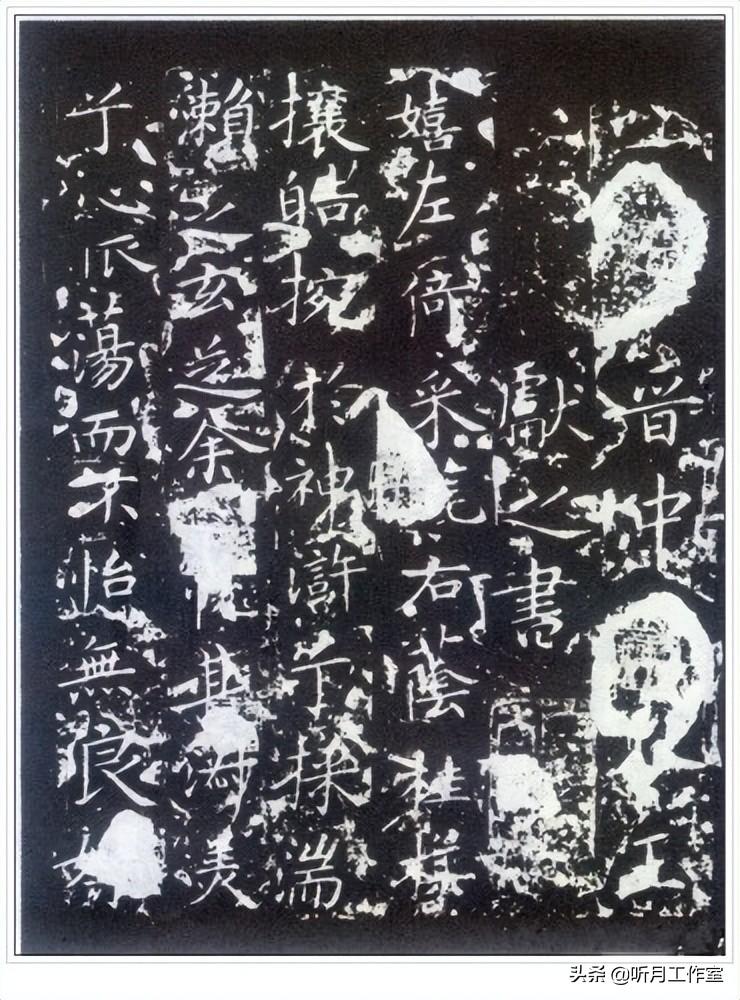 晉中王
獻之書
嬉左倚采旄右蔭桂旗
攘皓捥於神滸兮採湍
瀨之玄芝余其淑美
兮心振蕩而不怡無良
头条 @听月工作室